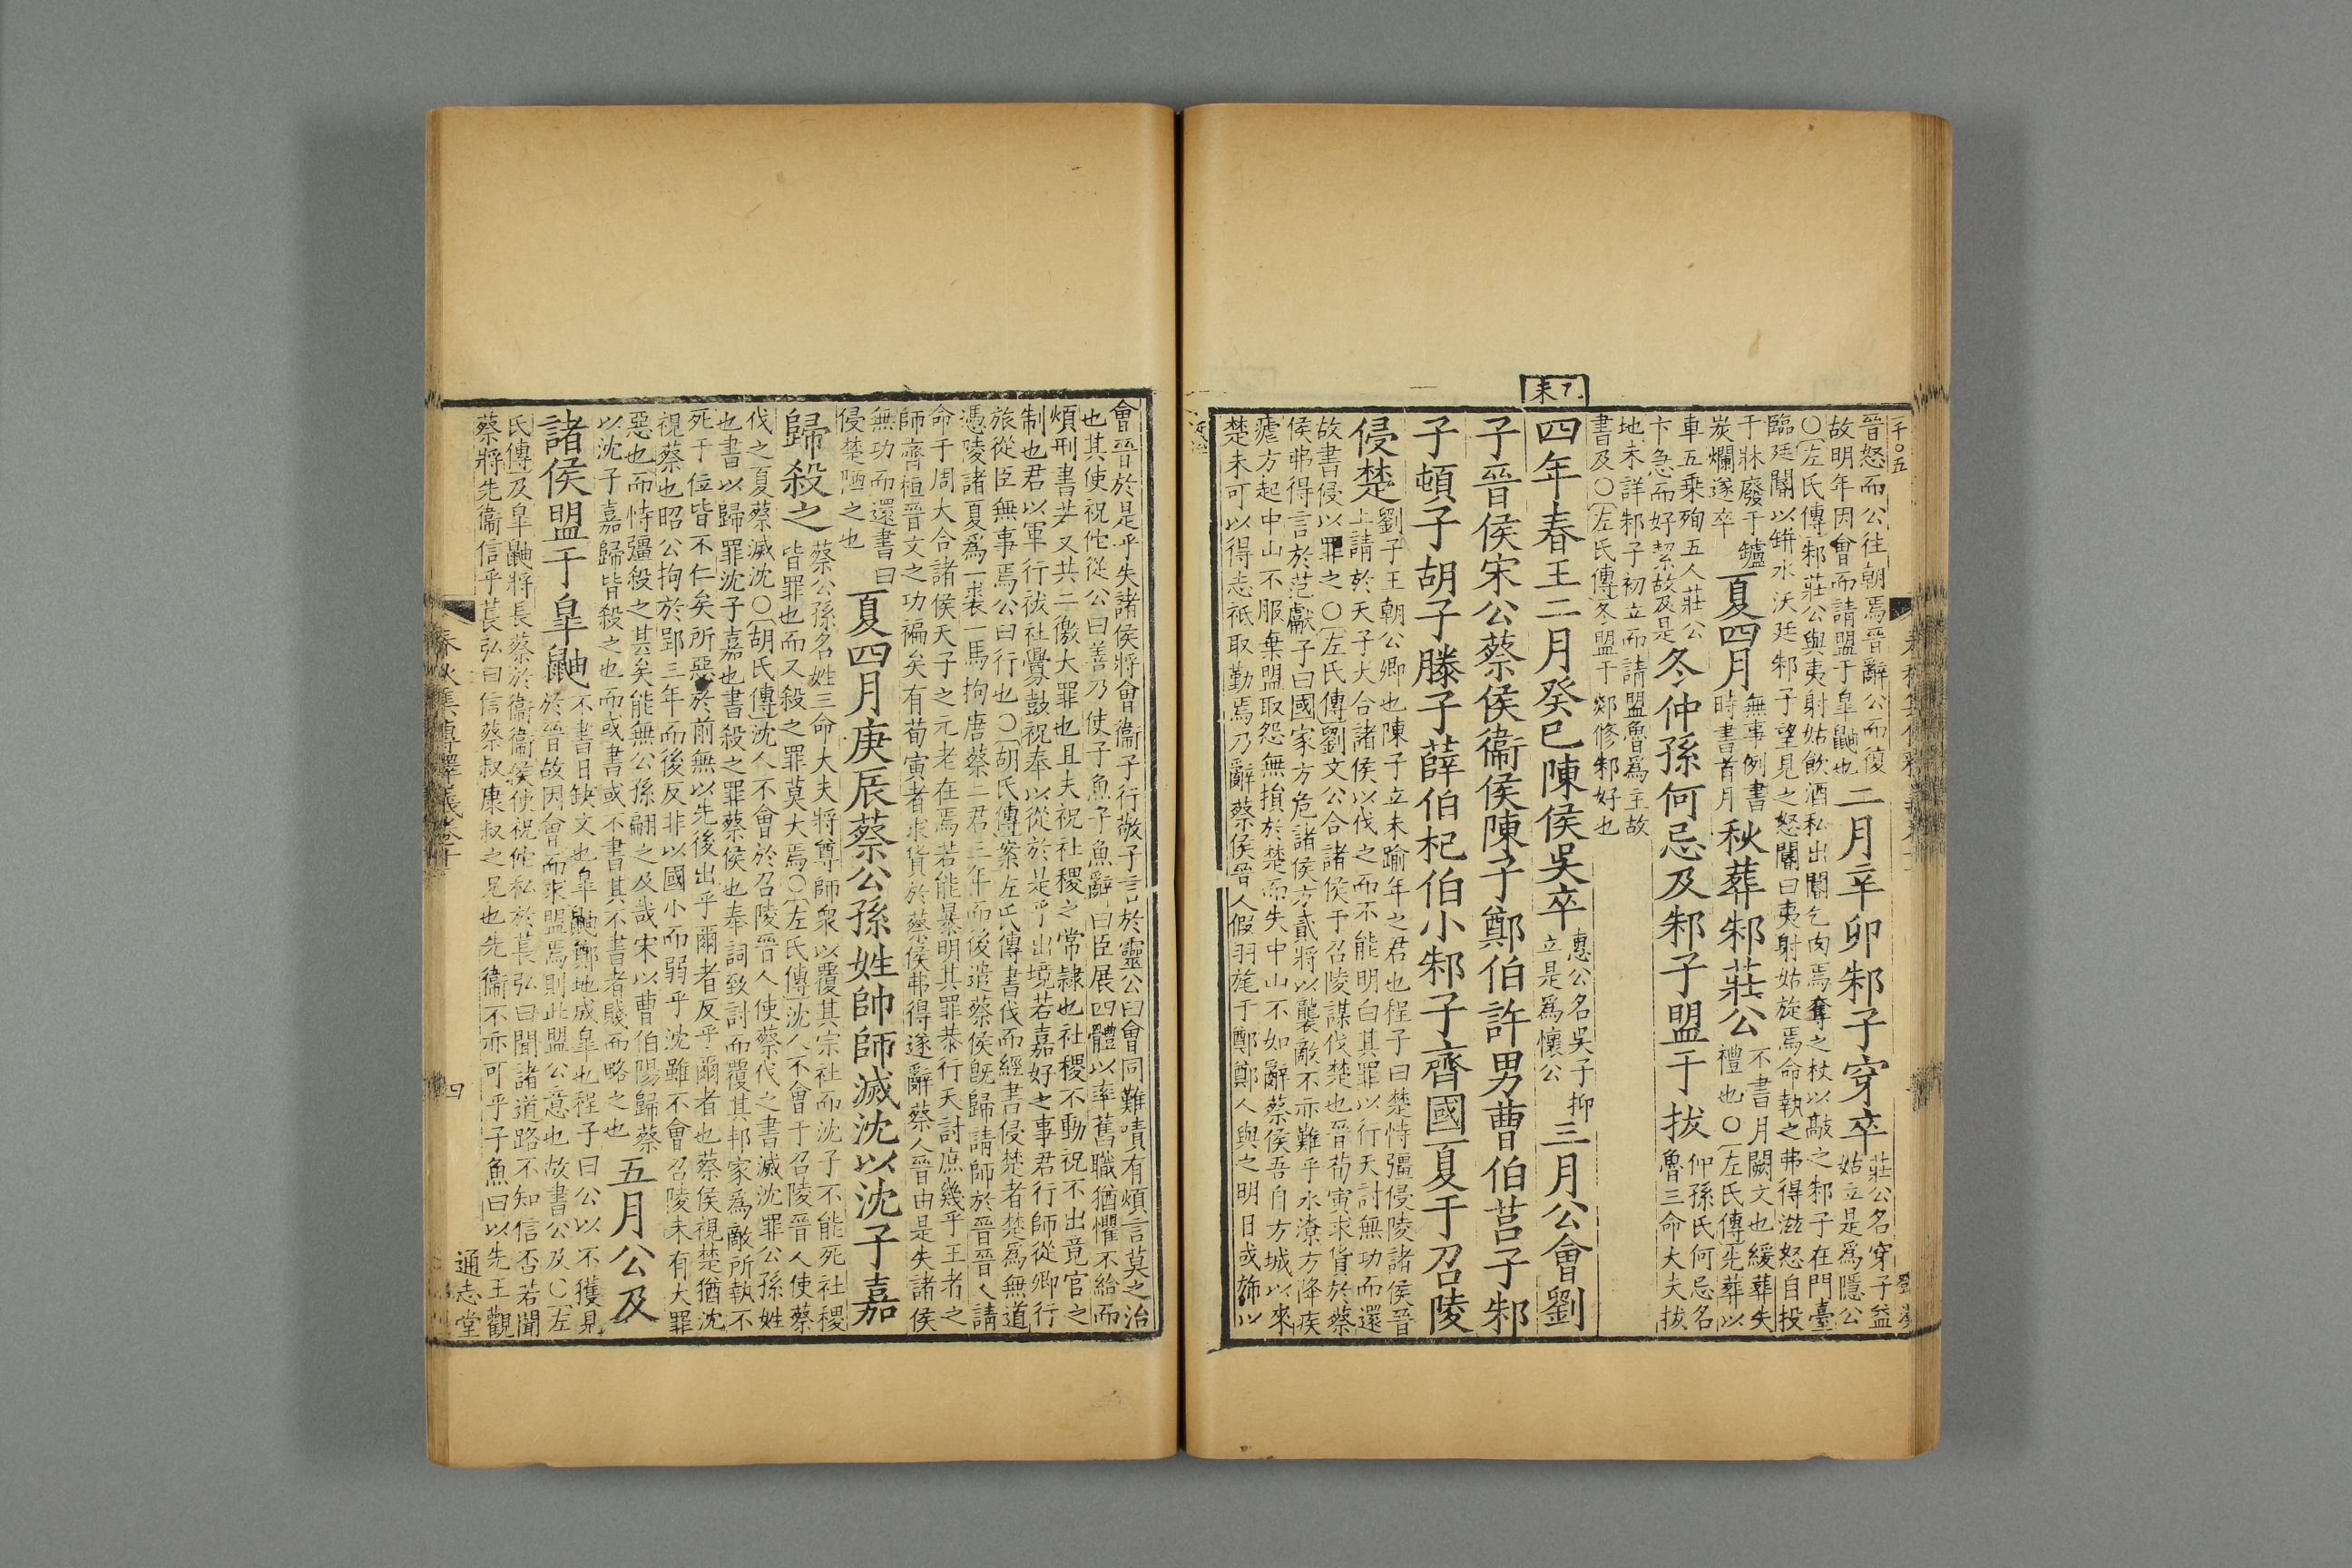 千〇五
晉怒而公往朝焉晉辭公而復
故明年因會而請盟于皐鼬也
二月辛卯邾子穿卒
莊公名穿子益
姑立是爲隱公
〇左氏傳邾莊公與夷射姑飮酒私出閽乞肉焉奪之杖以敲之邾子在門臺
臨廷閽以缾水沃廷邾子望見之怒閽曰夷射姑旋焉命執之弗得滋怒自投
于牀廢于鑪
炭爛遂卒
夏四月
無事例書
時書首月
秋葬邾莊公
不書月闕文也緩葬失
禮也〇左氏傳先葬以
車五乘殉五人莊公
卞急而好絜故及是
冬仲孫何忌及邾子盟于拔
仲孫氏何忌名
魯三命大夫拔
地未詳邾子初立而請盟魯爲主故
書及〇左氏傳冬盟于郯修邾好也
四年春王二月癸巳陳侯吳卒
惠公名吳子抑
立是爲懷公
三月公會劉
子晉侯宋公蔡侯衞侯陳子鄭伯許男曹伯莒子邾
子頓子胡子滕子薛伯杞伯小邾子齊國夏于召陵
侵楚
劉子王朝公卿也陳子立未踰年之君也程子曰楚恃彊侵陵諸侯晉
上請於天子大合諸侯以伐之而不能明白其罪以行天討無功而還
故書侵以罪之〇左氏傳劉文公合諸侯于召陵謀伐楚也晉荀寅求貨於蔡
侯弗得言於范獻子曰國家方危諸侯方貳將以襲敵不亦難乎水潦方降疾
瘧方起中山不服棄盟取怨無損於楚而失中山不如辭蔡侯吾自方城以來
楚未可以得志祇取勤焉乃辭蔡侯晉人假羽旄于鄭鄭人與之明日或斾以
會晉於是乎失諸侯將會衞子行敬子言於靈公曰會同難嘖有煩言莫之治
也其使祝佗從公曰善乃使子魚子魚辭曰臣展四體以率舊職猶懼不給而
煩刑書若又共二徼大罪也且夫祝社稷之常隷也社稷不動祝不出竟官之
制也君以軍行祓社釁鼓祝奉以從於是乎出境若嘉好之事君行師從卿行
旅從臣無事焉公曰行也〇胡氏傳案左氏傳書伐而經書侵楚者楚爲無道
憑陵諸夏爲一裘一馬拘唐蔡二君三年而後遣蔡侯旣歸請師於晉晉人請
命于周大合諸侯天子之元老在焉若能暴明其罪恭行天討庶幾乎王者之
師齊桓晉文之功褊矣有荀寅者求貨於蔡侯弗得遂辭蔡人晉由是失諸侯
無功而還書曰
侵楚陋之也
夏四月庚辰蔡公孫姓帥師滅沈以沈子嘉
歸殺之
蔡公孫名姓三命大夫將尊師衆以覆其宗社而沈子不能死社稷
皆罪也而又殺之罪莫大焉〇左氏傳沈人不會于召陵晉人使蔡
伐之夏蔡滅沈〇胡氏傳沈人不會於召陵晉人使蔡伐之書滅沈罪公孫姓
也書以歸罪沈子嘉也書殺之罪蔡侯也奉詞致討而覆其邦家爲敵所執不
死于位皆不仁矣所惡於前無以先後出乎爾者反乎爾者也蔡侯視楚猶沈
視蔡也昭公拘於郢三年而後反非以國小而弱乎沈雖不會召陵未有大罪
惡也而恃彊殺之其矣能無公孫翩之及哉宋以曹伯陽歸蔡
以沈子嘉歸皆殺之也而或書或不書其不書者賤而略之也
五月公及
諸侯盟于皐鼬
不書日缺文也皐鼬鄭地成皐也程子曰公以不獲見
於晉故因會而求盟焉則此盟公意也故書公及〇左
氏傳及皐鼬將長蔡於衞衞侯使祝佗私於萇弘曰聞諸道路不知信否若聞
蔡將先衞信乎萇弘曰信蔡叔康叔之兄也先衞不亦可乎子魚曰以先王觀
春秋集傳釋義卷十
四
通志堂